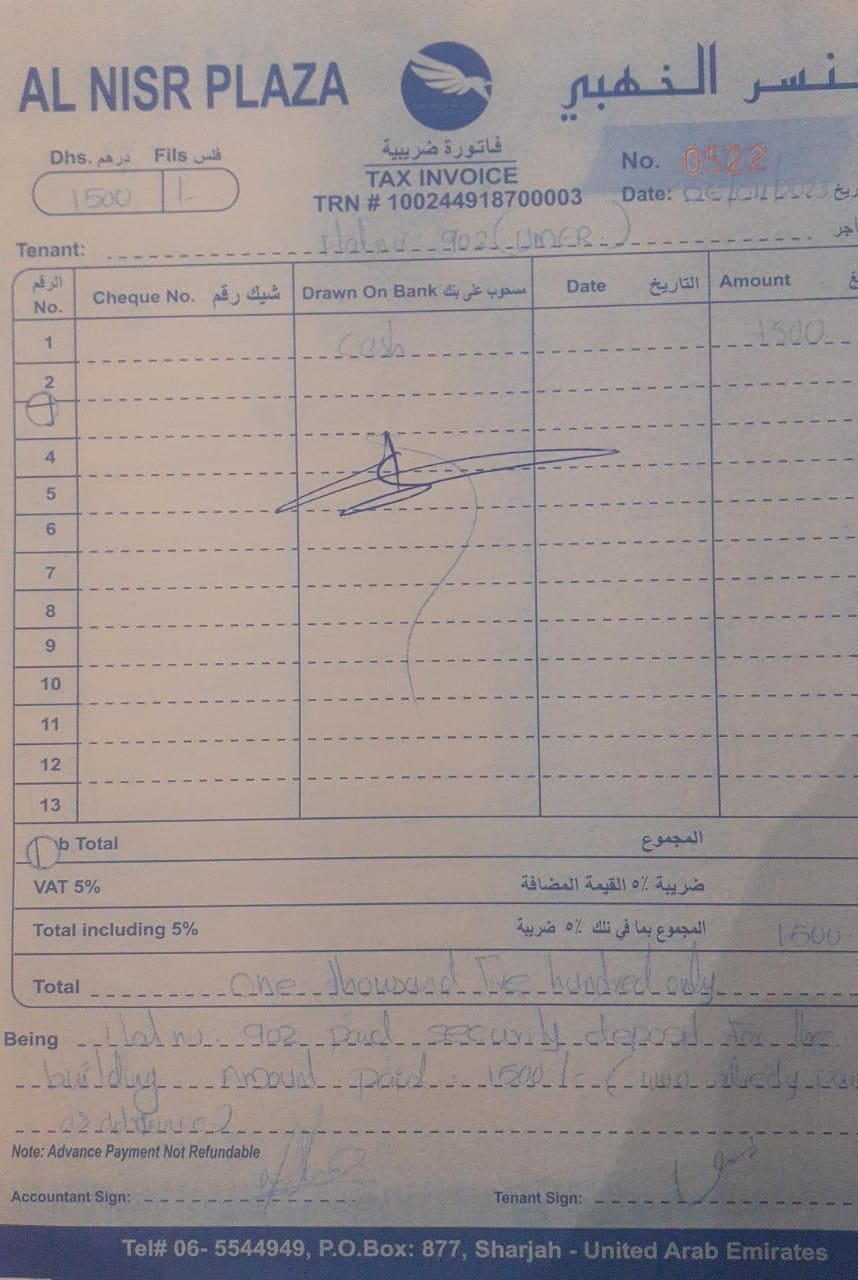 AL NISR PLAZA
نسر الذهبي
Dhs. درهم Fils فلس
1500 /-
فاتورة ضريبية
TAX INVOICE
TRN # 100244918700003
No. 0522
Date:
Tenant: 902 (UMER)
الرقم No. Cheque No. شيك رقم Drawn On Bank مسحوب على بنك Date التاريخ Amount
1 Cash 1500
2
4
5
6
7
8
9
10
11
12
13
b Total المجموع
VAT 5% ضريبة ٥٪ القيمة المضافة
Total including 5% المجموع بما في ذلك ٥٪ ضريبة 1500
Total one thousand five hundred only
Being flat no. 902 paid security deposit for the
building Amount paid 1500/- (
Note: Advance Payment Not Refundable
Accountant Sign: Tenant Sign:
Tel# 06- 5544949, P.O.Box: 877, Sharjah - United Arab Emirates